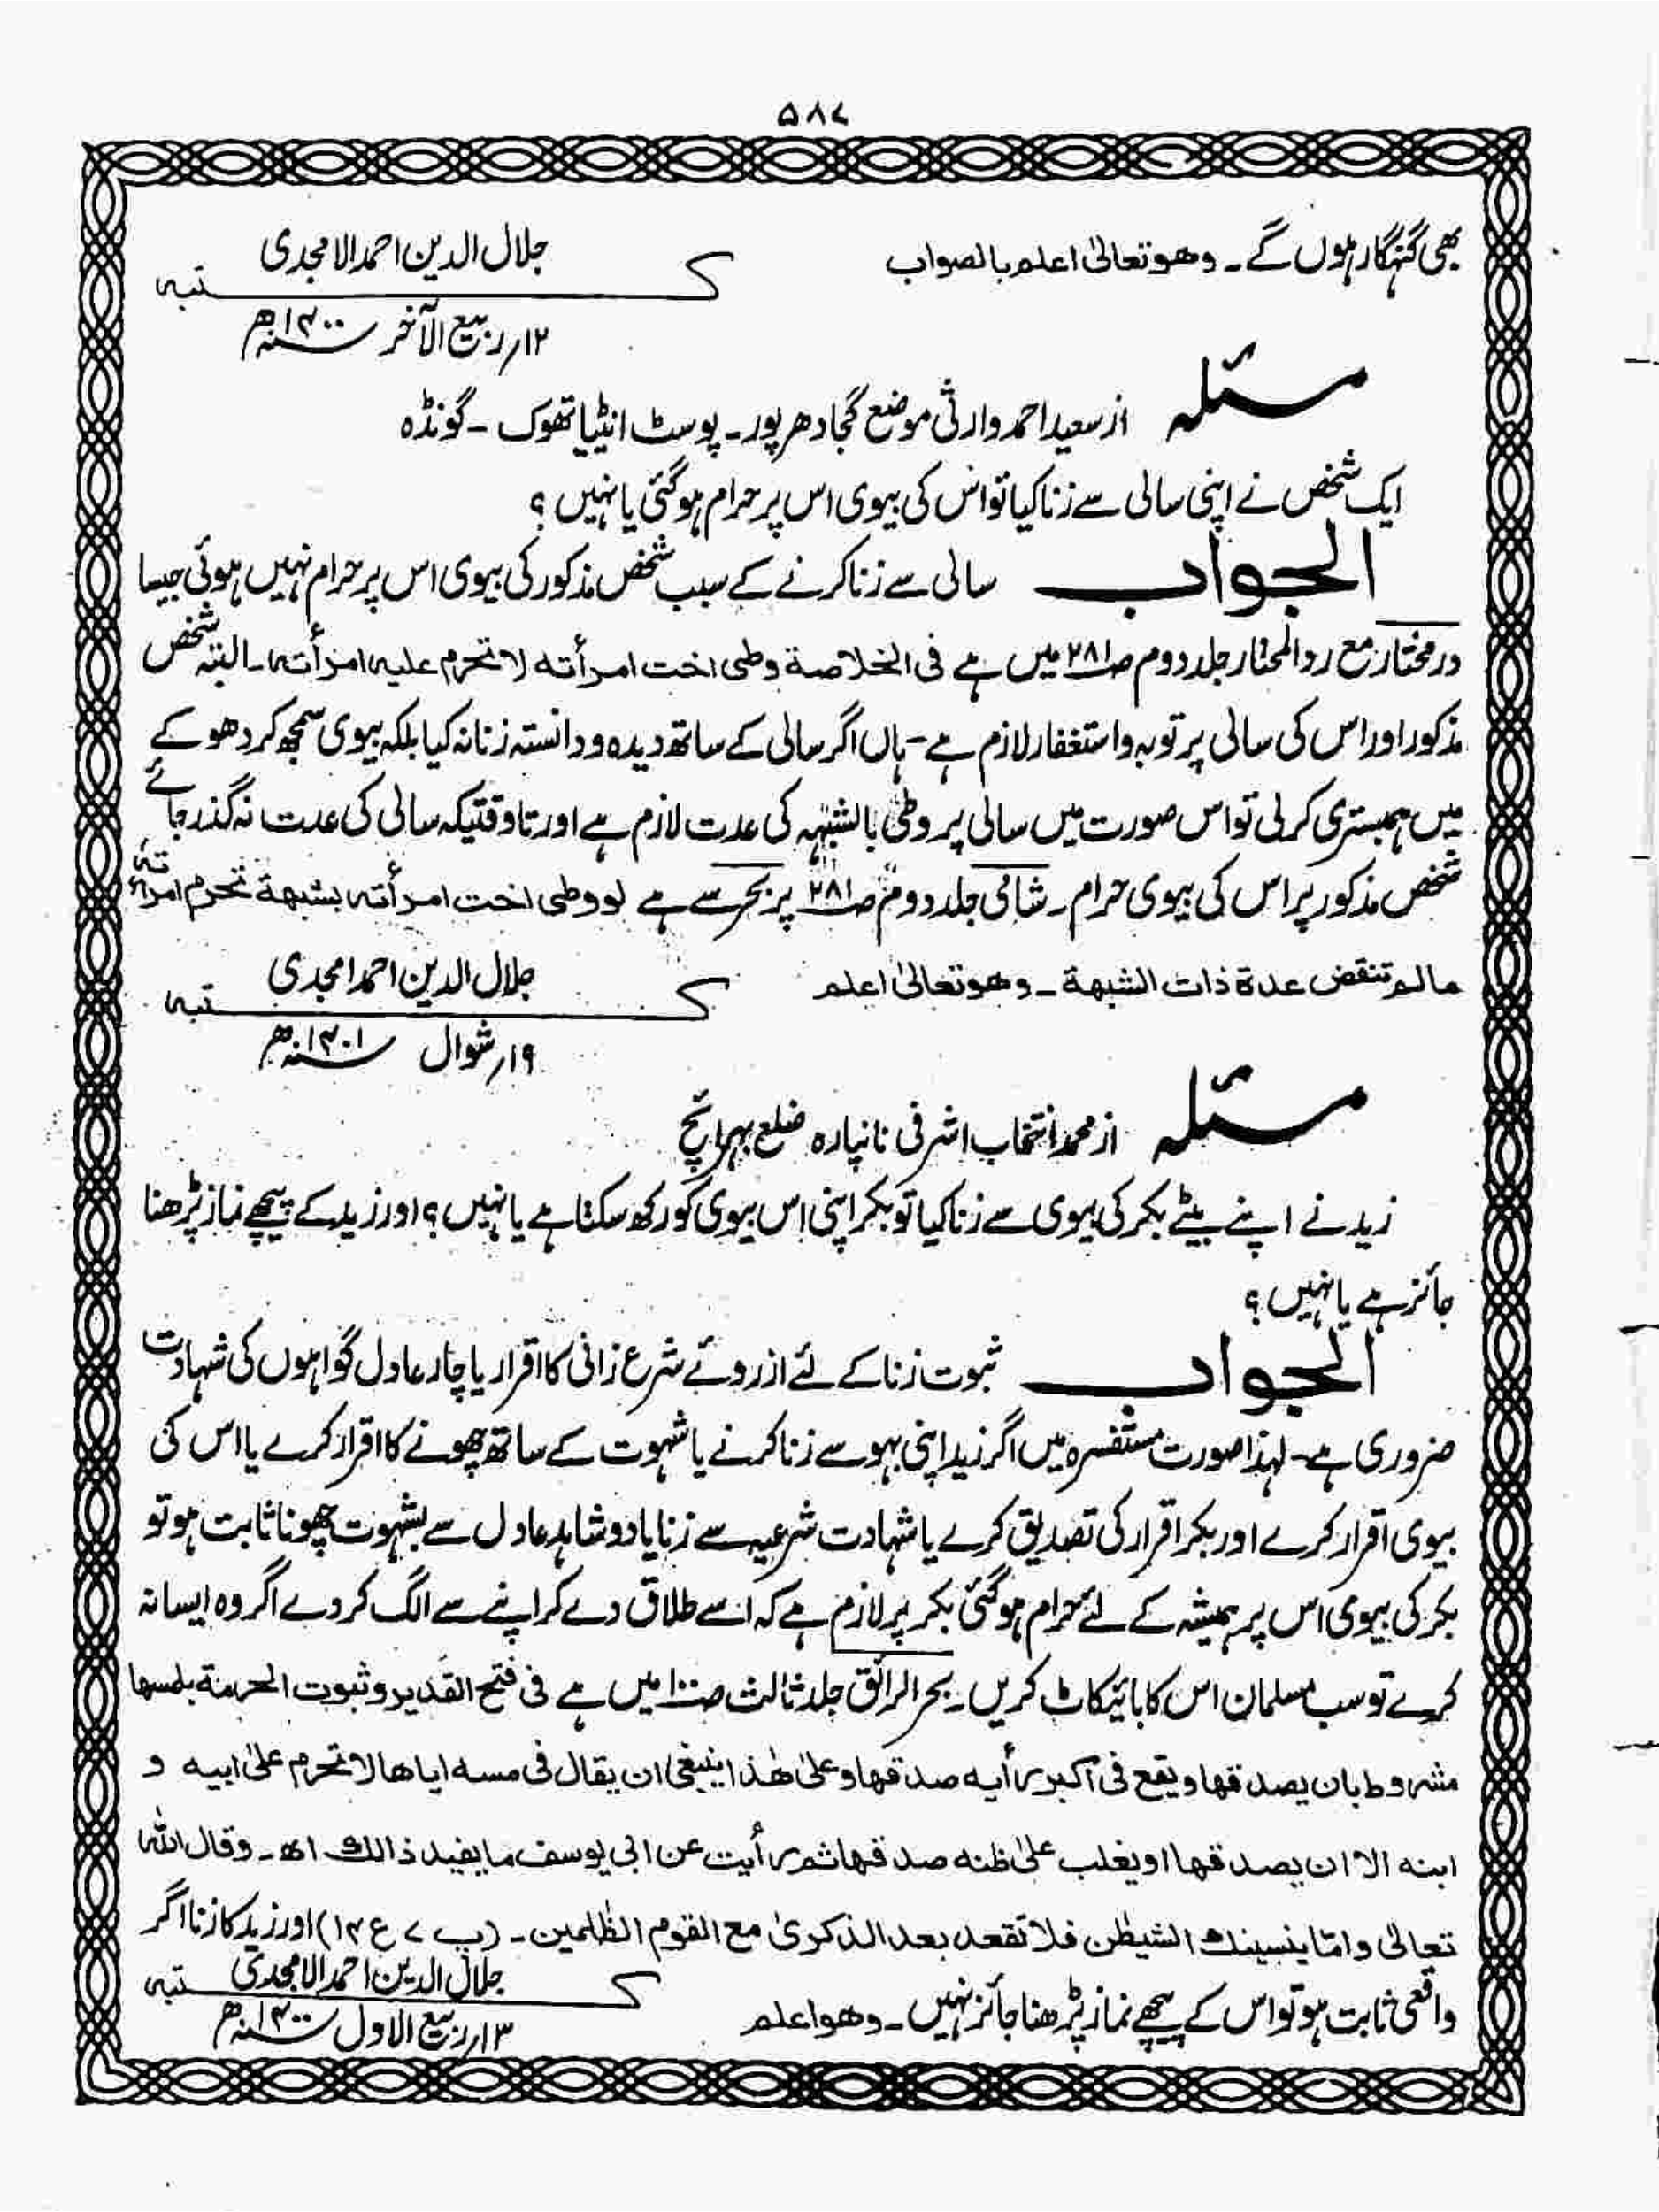 ۵۸۷
بھی گنہگار ہوں گے۔ وھو تعالیٰ اعلم بالصواب
جلال الدین احمد الامجدی
کتبہ
۱۲؍ ربیع الآخر سنہ ۱۴۰۰ھ
مسئلہ
از سعید احمد وارثی موضع گجادھر پور۔ پوسٹ انٹیا تھوک ۔ گونڈہ
ایک شخص نے اپنی سالی سے زنا کیا تو اس کی بیوی اس پر حرام ہوگئی یا نہیں؟
الجواب سالی سے زنا کرنے کے سبب شخص مذکور کی بیوی اس پر حرام نہیں ہوئی جیسا
درمختار مع ردالمحتار جلد دوم ص۲۸۱ میں ہے فی الخلاصة وطی اخت امرأته لا تحرم علیہ امرأتہ۔ البتہ شخص
مذکور اور اس کی سالی پر توبہ واستغفار لازم ہے۔ ہاں اگر سالی کے ساتھ دیدہ و دانستہ زنا نہ کیا بلکہ بیوی سمجھ کر دھوکے
میں ہمبستری کرلی تو اس صورت میں سالی پر وطی بالشبہہ کی عدت لازم ہے اور تاوقتیکہ سالی کی عدت نہ گذر جائے
شخص مذکور پر اس کی بیوی حرام۔ شامی جلد دوم ص۲۸۱ پر بحر سے ہے لو وطی اخت امرأتہ بشبهة تحرم امرأتہ
مالم تنقض عدة ذات الشبهة ۔ وھو تعالیٰ اعلم
جلال الدین احمد امجدی
کتبہ
۱۹؍ شوال سنہ ۱۴۰۱ھ
مسئلہ
از محمد انتخاب اشرفی نانپارہ ضلع بہرائچ
زید نے اپنے بیٹے بکر کی بیوی سے زنا کیا تو بکر اپنی اس بیوی کو رکھ سکتا ہے یا نہیں؟ اور زید کے پیچھے نماز پڑھنا
جائز ہے یا نہیں؟
الجواب ثبوت زنا کے لئے ازروئے شرع زانی کا اقرار یا چار عادل گواہوں کی شہادت
ضروری ہے۔ لہذا صورت مستفسرہ میں اگر زید اپنی بہو سے زنا کرنے یا شہوت کے ساتھ چھونے کا اقرار کرے یا اس کی
بیوی اقرار کرے اور بکر اقرار کی تصدیق کرے یا شہادت شرعیہ سے زنا یا دو شاہد عادل سے بشہوت چھونا ثابت ہو تو
بکر کی بیوی اس پر ہمیشہ کے لئے حرام ہوگئی بکر پر لازم ہے کہ اسے طلاق دے کر اپنے سے الگ کردے اگر وہ ایسا نہ
کرے تو سب مسلمان اس کا بائیکاٹ کریں۔ بحر الرائق جلد ثالث ص۱۰۰ میں ہے فی فتح القدیر وثبوت الحرمة بلمسها
مشروط بان یصدقها ویقع فی اکبر رأیه صدقها وعلیٰ هٰذا ینبغی ان یقال فی مسه ایاها لا تحرم علیٰ ابیه و
ابنه الا ان یصدقها او یغلب علیٰ ظنه صدقها ثم رأیت عن ابی یوسف ما یفید ذالك اھ ۔ وقال اللہ
تعالیٰ واما ینسینك الشیطٰن فلا تقعد بعد الذکریٰ مع القوم الظٰلمین ۔ (پ ۷ ع ۱۴) اور زید کا زنا اگر
واقعی ثابت ہو تو اس کے پیچھے نماز پڑھنا جائز نہیں۔ وھو اعلم
جلال الدین احمد الامجدی
کتبہ
۱۳؍ ربیع الاول سنہ ۱۴۰۰ھ